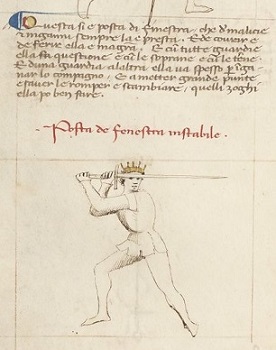 Questa sie posta di finestra che di malicie
e ingani sempre la e presta. E de covrir e
de ferir ella e magistra. E cum tutte guardie
ella fa questione e cum le soprane e cum le terene
E duna guardia a laltra ella va spesso per ingan
nar lo compagno. E a metter grande punte
e saver le romper e scambiare, quelli zoghi
ella po ben fare.
Posta de fenestra instabile